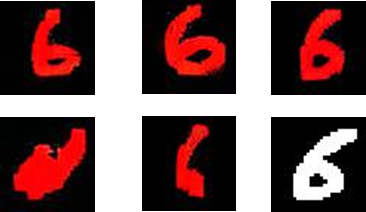 6 6 6
6 6